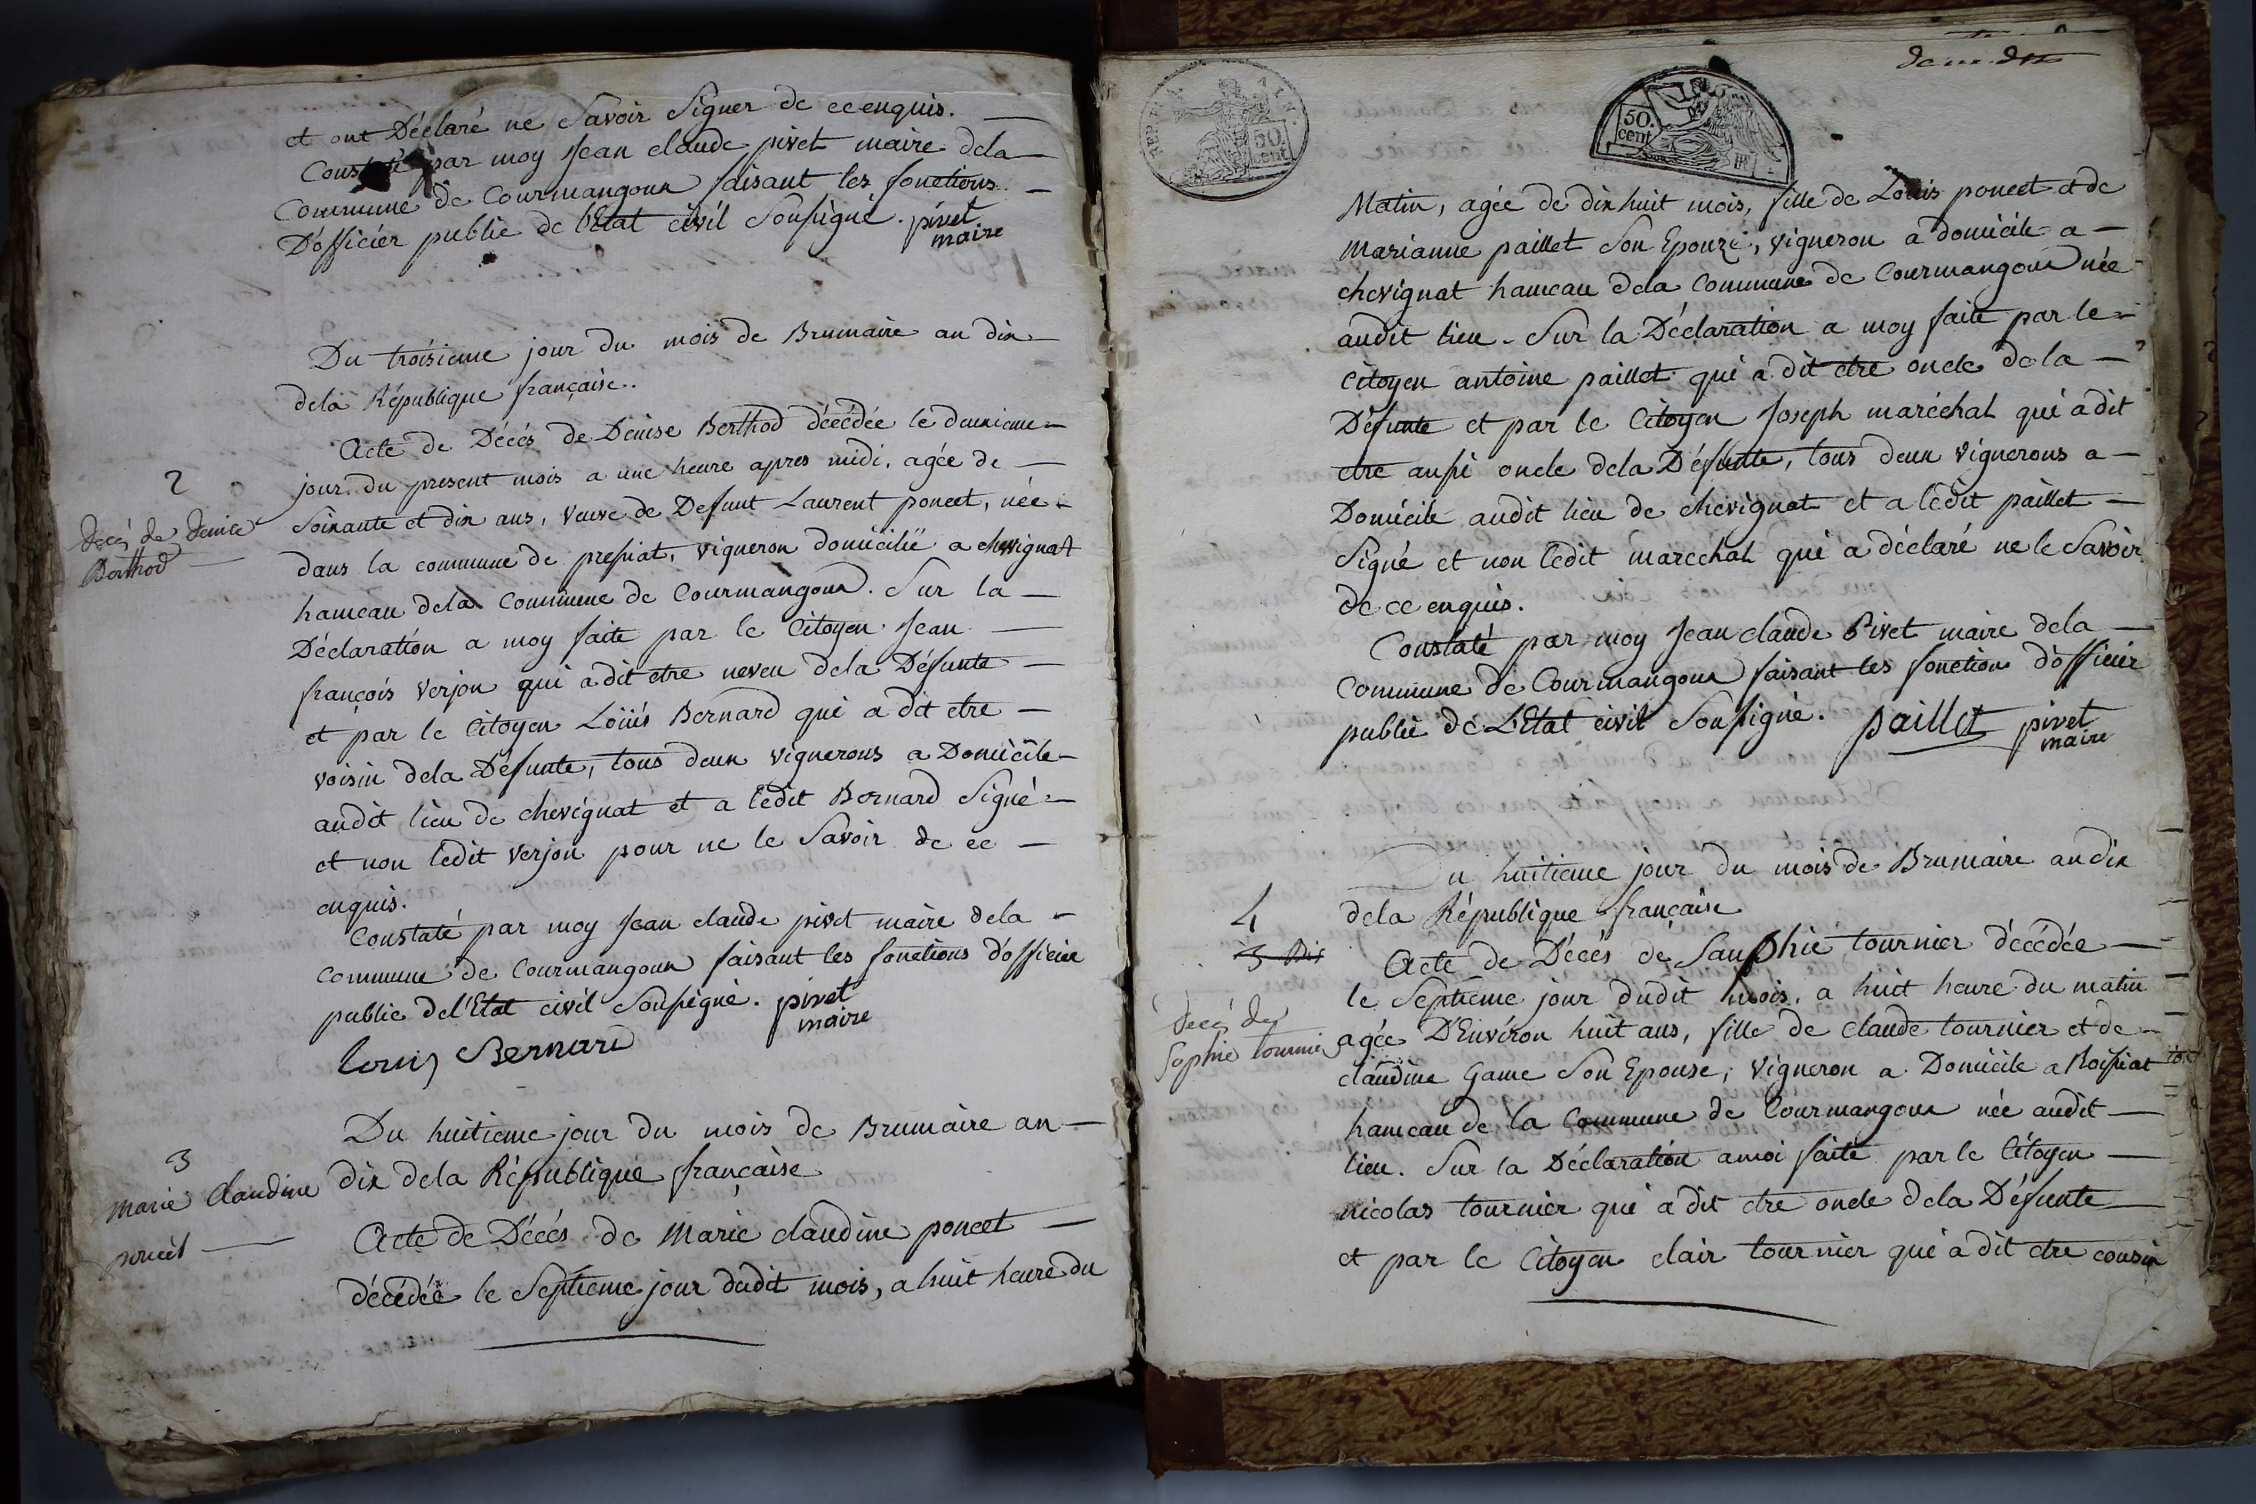 et ont Déclaré ne Savoir Signer de ce enquis.
Constaté par moy Jean claude pivet maire dela
Commune de Courmangoux faisant les fonctions
D'officier public de l'Etat civil Soussigné. pivet
maire
Du troisieme jour du mois de Brumaire an dix
dela République française..
2
decès de denise
Berthod
Acte de Décés de Denise Berthod décédée le deuxieme
jour du present mois a une heure apres midi, agée de
Soixante et dix ans, Veuve de Defunt Laurent poncet, née
dans la commune de pressiat, vigneron domicilié a chevignat
hameau dela Commune de Courmangoux. Sur la
Déclaration a moy faite par le Citoyen Jean
françois Verjon qui a dit etre neveu dela Défunte
et par le Citoyen Loüis Bernard qui a dit etre
voisin dela Défunte, tous deux vignerons a Domicile
audit lieu de chevignat et a ledit Bernard Signé
et non ledit verjon pour ne le Savoir de ce
enquis.
Constaté par moy Jean claude pivet maire dela
commune de Courmangoux faisant les fonctions d'officier
public de l'Etat civil Soussigné. pivet
maire
Louis Bernard
3
marie Claudine
poncet
Du huitieme jour du mois de Brumaire an
dix dela République française
Acte de Décés de Marie claudine poncet
décédée le Septieme jour dudit mois, a huit heure du
REP. FRA.
50
cent
50.
cent
Matin, agée de dix huit mois, fille de Louis poncet et de
Marianne paillet Son Epouze, vigneron a domicile a
chevignat hameau dela Commune de Courmangoux née
audit lieu. Sur la Déclaration a moy faite par le
Citoyen antoine paillet qui a dit etre oncle dela
Défunte et par le Citoyen Joseph maréchal qui a dit
etre aussi oncle dela Défunte, tous deux Vignerons a
Domicile audit lieu de chevignat et a ledit paillet
Signé et non ledit marechal qui a déclaré ne le Savoir
de ce enquis.
Constaté par moy Jean claude Pivet maire dela
Commune de Courmangoux faisant les fonction d'officier
public de L'Etat civil Soussigné. paillet pivet
maire
Du huitieme jour du mois de Brumaire an dix
dela République française
4
3 Bis
decès de
Sophie tournier
Acte de Décés de Sauphie tournier décédée
le Septieme jour dudit mois, a huit heure du matin
agée D'Environ huit ans, fille de Claude tournier et de
claudine Game Son Epouse, Vigneron a Domicile a Roissiat
hameau de la Commune de Courmangoux née audit
lieu. Sur la Déclaration a moi faite par le Citoyen
nicolas tournier qui a dit etre oncle dela Défunte
et par le Citoyen clair tournier qui a dit etre cousin